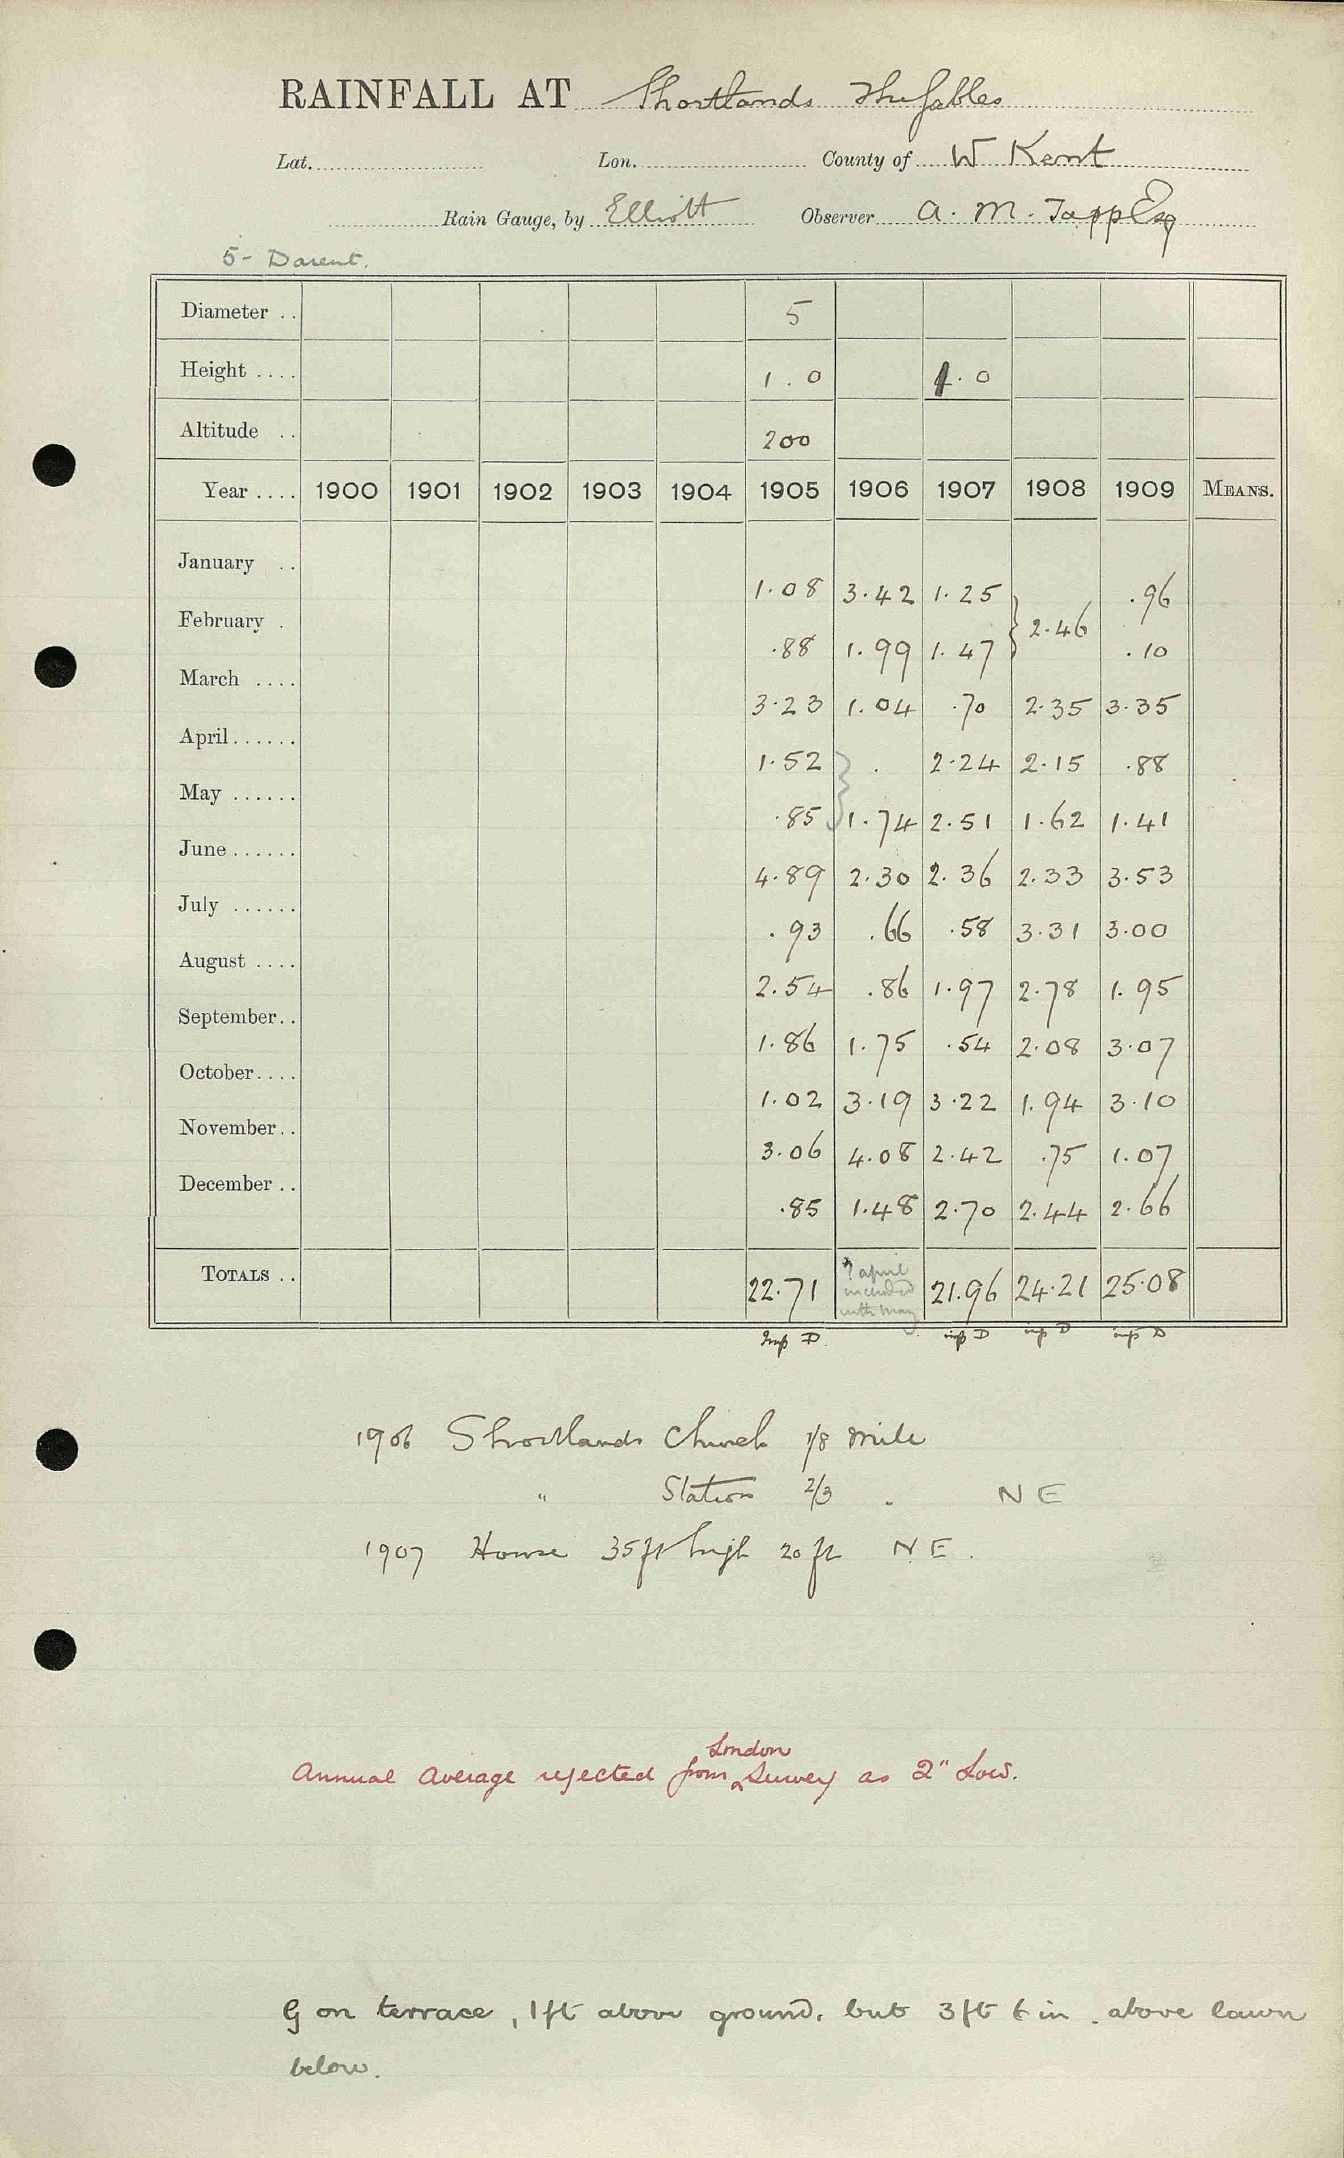 RAINFALL AT Shortlands The Gables
Lat. Lon. County of W Kent
Rain Gauge, by Elliott Observer A. M. Tapp Esq
5 - Darent.
Diameter .. 5
Height .... 1.0 1.0
Altitude .. 200
Year .... 1900 1901 1902 1903 1904 1905 1906 1907 1908 1909 MEANS.
January .. 1.08 3.42 1.25 .96
February . .88 1.99 1.47 } 2.46 .10
March .... 3.23 1.04 .70 2.35 3.35
April...... 1.52 } . 2.24 2.15 .88
May ...... .85 1.74 2.51 1.62 1.41
June...... 4.89 2.30 2.36 2.33 3.53
July ...... .93 .66 .58 3.31 3.00
August .... 2.54 .86 1.97 2.78 1.95
September.. 1.86 1.75 .54 2.08 3.07
October.... 1.02 3.19 3.22 1.94 3.10
November.. 3.06 4.08 2.42 .75 1.07
December .. .85 1.48 2.70 2.44 2.66
TOTALS .. 22.71 ? april included with may 21.96 24.21 25.08
Imp D inp D inp D inp D
1906 Shortlands Church 1/8 mile
" Station 2/3 " NE
1907 House 35ft high 20 ft NE.
London
Annual Average rejected from ^ Survey as 2" Low.
G on terrace, 1ft above ground, but 3ft 6 in. above lawn
below.